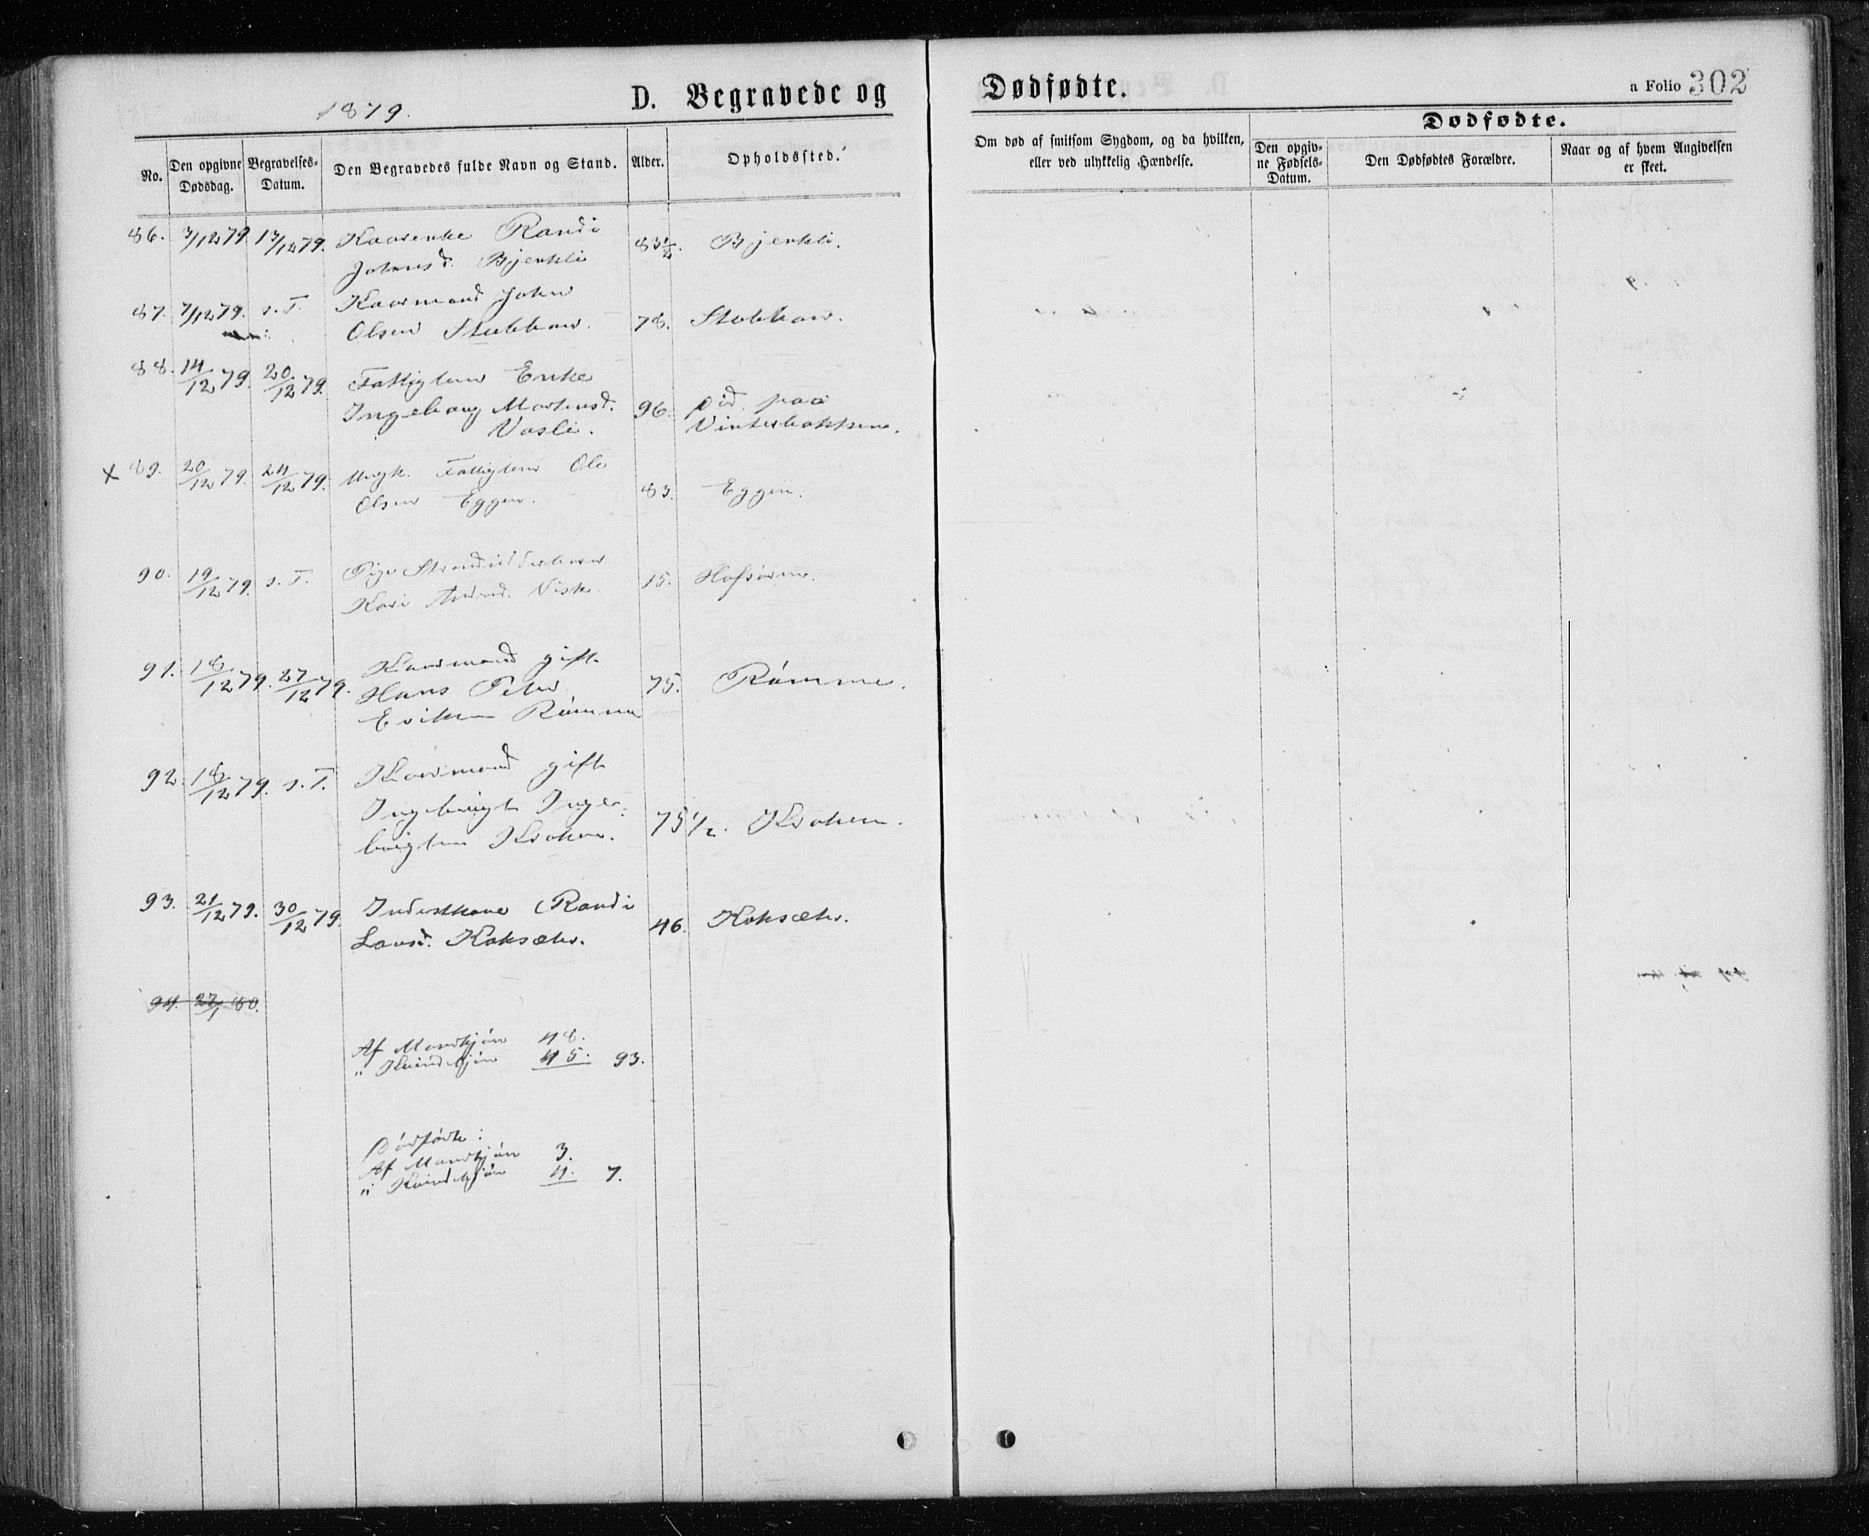 1879.
D. Begravede og
Dødfødte.
a Folio 302
No.
Den opgivne Dødsdag.
Begravelses-Datum.
Den Begravedes fulde Navn og Stand.
Alder.
Opholdssted.
Om død af smitsom Sygdom, og da hvilken, eller ved ulykkelig Hændelse.
Dødfødte.
Den opgivne Fødsels-Datum.
Den Dødfødtes Forældre.
Naar og af hvem Angivelsen er skeet.
86. 3/12 79 13/12 79. Kaarenke Randi 83 1/2. Bjerkli.
Johnsd. Bjerkli
87. 7/12 79. s. T. Kaarmand John
Olsen Stubhau. 78. Stubhau.
88. 14/12 79. 20/12 79. Fattiglem Enke
Ingeborg Mortensd. 96. paa
Vasli. Vinterbakken.
x 89. 20/12 79. 24/12 79. Ugk. Fattiglem Ole
Olsen Eggen. 83. Eggen.
90. 19/12 79. s. T. Pige
Kari 15.
91. 18/12 79. 27/12 79. Kaarmand gift
Hans Peter 75. Rømme.
Eriksen Rømme
92. 18/12 79. s. T. Kaarmand gift
Ingebrigt Inge-
brigtsen Kroken. 75 1/2. Kroken.
93. 21/12 79. 30/12 79. Inderstkone Randi
Larsd. Koksæter. 46. Koksæter.
94. 27/1 80.
Af Mandkjøn 48.
" Kvindekjøn 45. 93.
Dødfødte:
Af Mandkjøn 3.
" Kvindekjøn 4. 7.